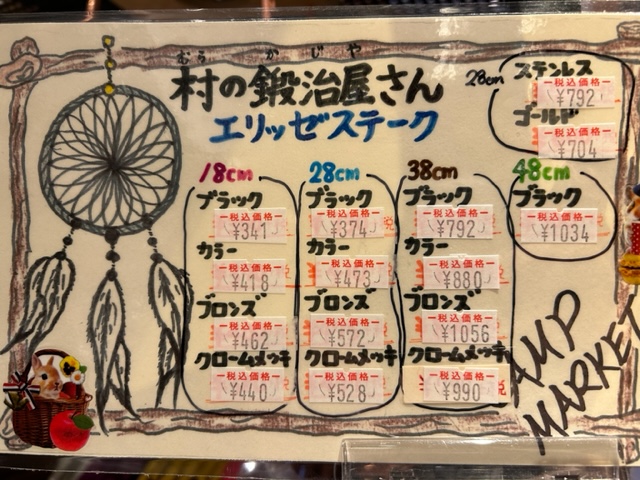 むら かじや
村の鍛冶屋さん
エリッゼステーク
28cm
ステンレス
税込価格
¥792
ゴールド
税込価格
¥704
18cm
ブラック
税込価格
¥341
カラー
税込価格
¥418
ブロンズ
税込価格
¥462
クロームメッキ
税込価格
¥440
28cm
ブラック
税込価格
¥374
カラー
税込価格
¥473
ブロンズ
税込価格
¥572
クロームメッキ
税込価格
¥528
38cm
ブラック
税込価格
¥792
カラー
税込価格
¥880
ブロンズ
税込価格
¥1056
クロームメッキ
税込価格
¥990
48cm
ブラック
税込価格
¥1034
MARKET